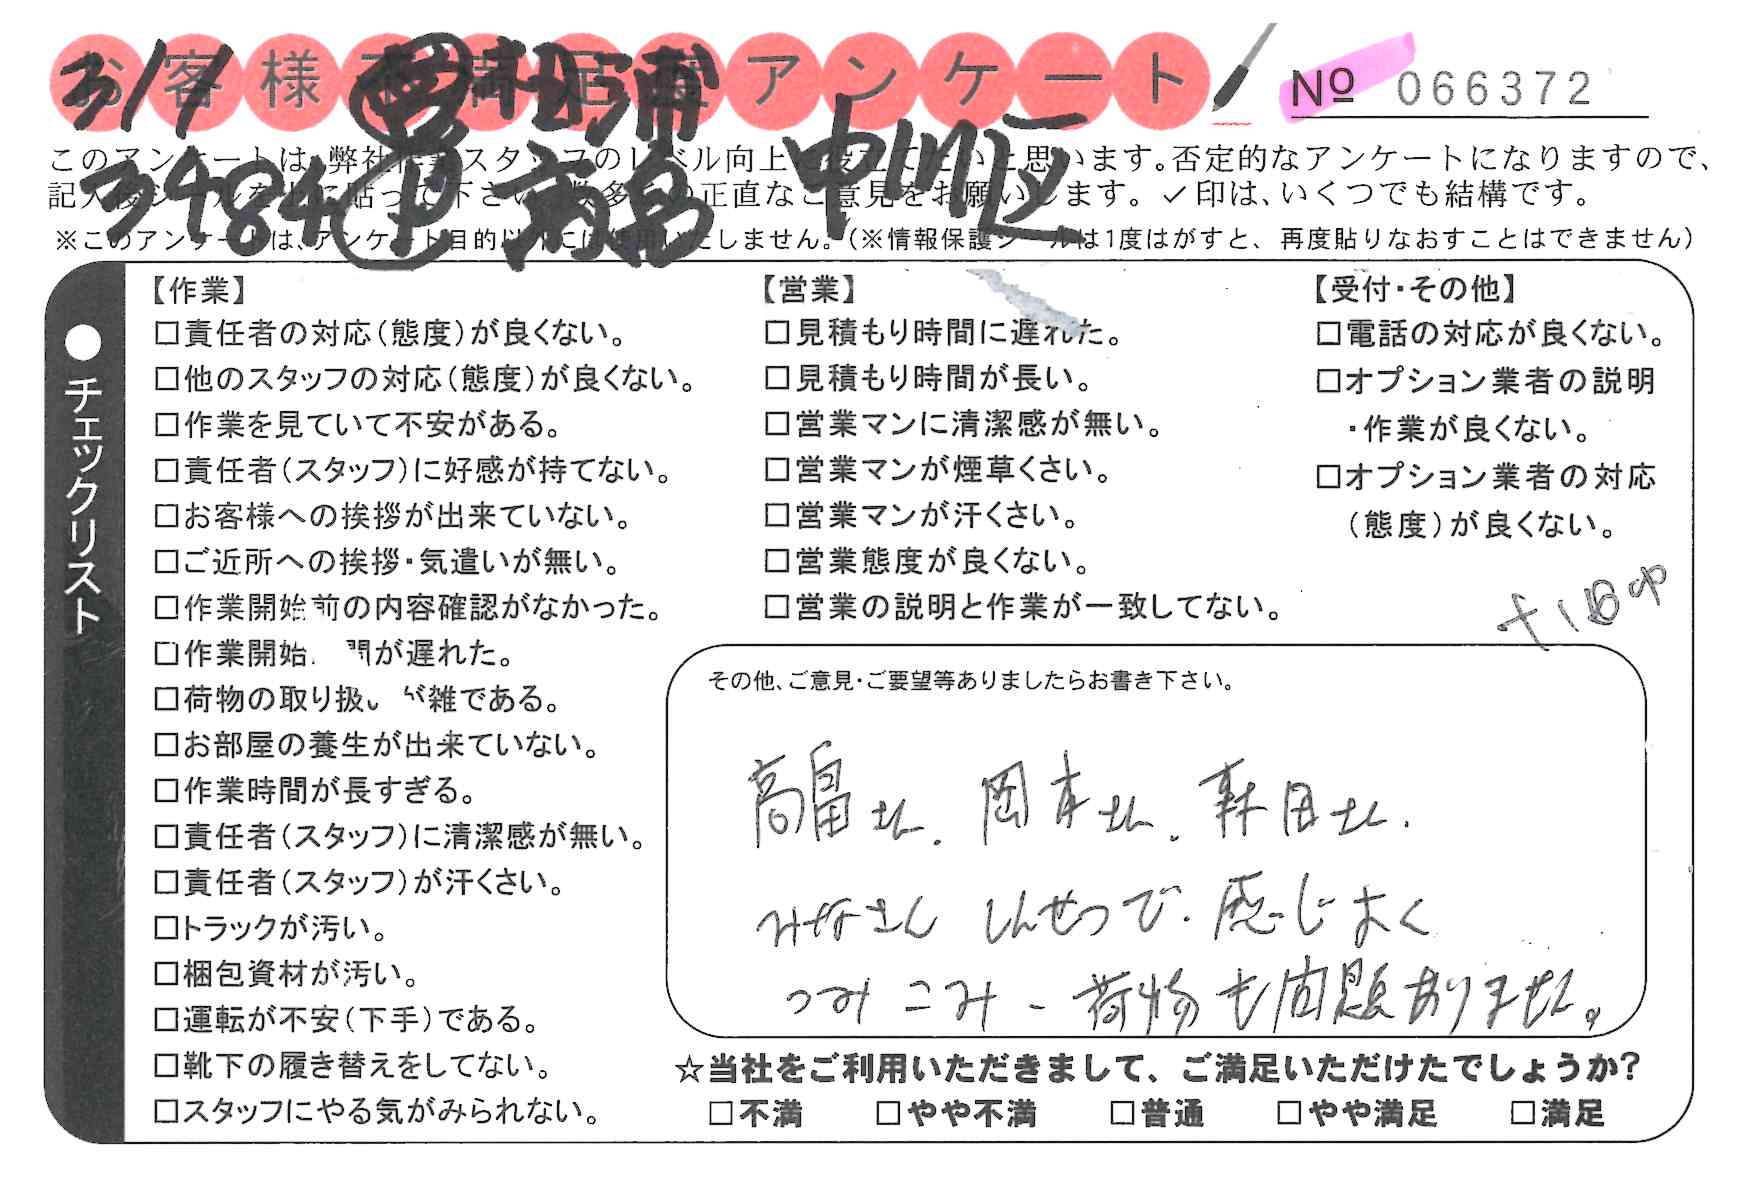 お客様不満足度アンケート
№ 066372
3/7 営 杉浦
3484 中川区
このアンケートは、弊社作業スタッフのレベル向上に役立てたいと思います。否定的なアンケートになりますので、
記入後シールを上に貼って下さい。数多くの正直なご意見をお願いします。✓印は、いくつでも結構です。
※このアンケートは、アンケート目的以外には使用いたしません。(※情報保護シールは1度はがすと、再度貼りなおすことはできません)
●チェックリスト
【作業】
□責任者の対応(態度)が良くない。
□他のスタッフの対応(態度)が良くない。
□作業を見ていて不安がある。
□責任者(スタッフ)に好感が持てない。
□お客様への挨拶が出来ていない。
□ご近所への挨拶・気遣いが無い。
□作業開始前の内容確認がなかった。
□作業開始 間が遅れた。
□荷物の取り扱いが雑である。
□お部屋の養生が出来ていない。
□作業時間が長すぎる。
□責任者(スタッフ)に清潔感が無い。
□責任者(スタッフ)が汗くさい。
□トラックが汚い。
□梱包資材が汚い。
□運転が不安(下手)である。
□靴下の履き替えをしてない。
□スタッフにやる気がみられない。
【営業】
□見積もり時間に遅れた。
□見積もり時間が長い。
□営業マンに清潔感が無い。
□営業マンが煙草くさい。
□営業マンが汗くさい。
□営業態度が良くない。
□営業の説明と作業が一致してない。
【受付・その他】
□電話の対応が良くない。
□オプション業者の説明
・作業が良くない。
□オプション業者の対応
(態度)が良くない。
その他、ご意見・ご要望等ありましたらお書き下さい。
高畠さん、岡本さん、軒田さん、
みなさん しんせつで、感じよく
つみこみ、荷物も問題ありません。
☆当社をご利用いただきまして、ご満足いただけたでしょうか?
□不満 □やや不満 □普通 □やや満足 □満足